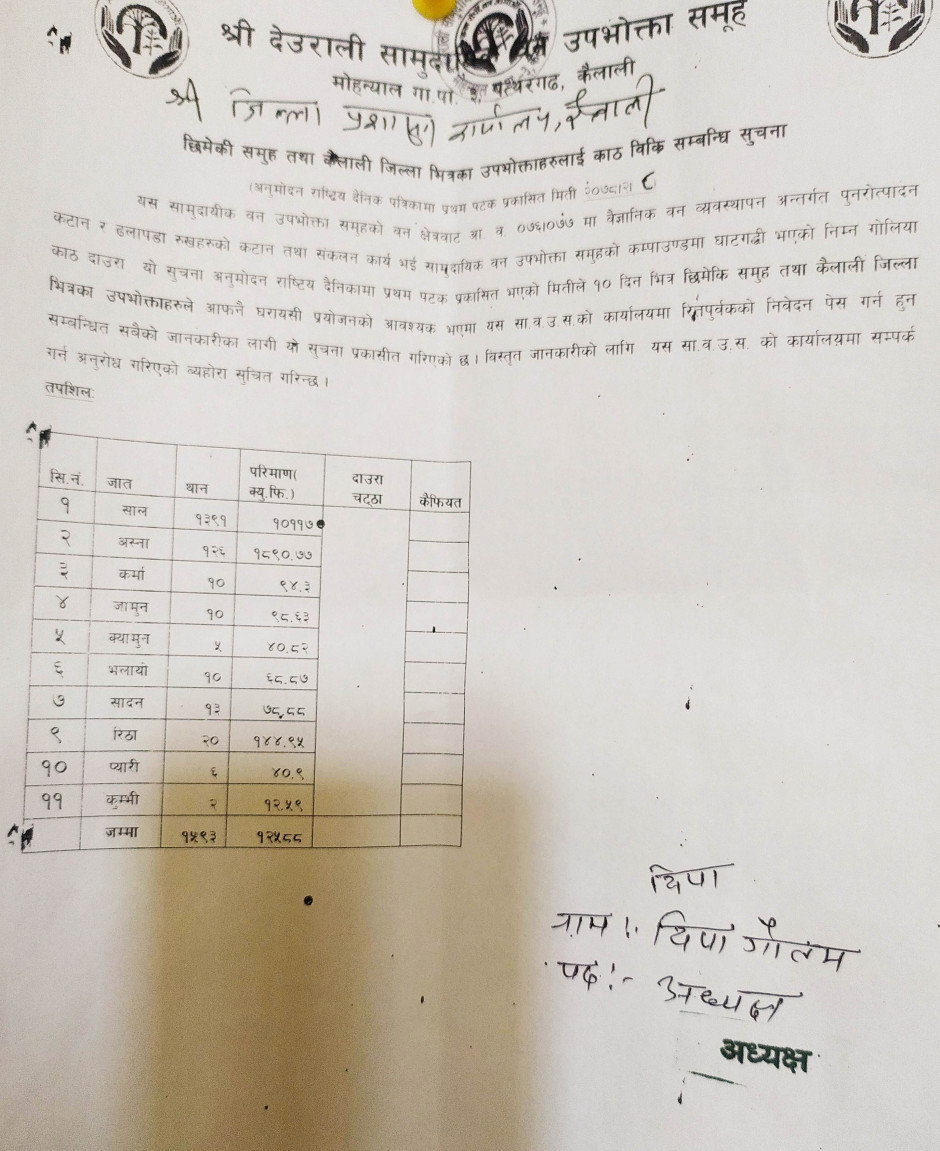 श्री देउराली सामुदायिक वन उपभोक्ता समूह
मोहन्याल गा.पा. २, पत्थरगढ, कैलाली
श्री जिल्ला प्रशासन कार्यालय, कैलाली
छिमेकी समुह तथा कैलाली जिल्ला भित्रका उपभोक्ताहरुलाई काठ विक्रि सम्बन्धि सुचना
(अनुमोदन राष्ट्रिय दैनिक पत्रिकामा प्रथम पटक प्रकासित मिती २०७८।२। ८
यस सामुदायीक वन उपभोक्ता समुहको वन क्षेत्रवाट आ व. ०७६।०७७ मा वैज्ञानिक वन व्यवस्थापन अन्तर्गत पुनरोत्पादन
कटान र ढलापडा रुखहरुको कटान तथा संकलन कार्य भई सामुदायिक वन उपभोक्ता समुहको कम्पाउण्डमा घाटगद्दी भएको निम्न गोलिया
काठ दाउरा यो सुचना अनुमोदन राष्टिय दैनिकामा प्रथम पटक प्रकासित भएको मितीले १० दिन भित्र छिमेकि समुह तथा कैलाली जिल्ला
भित्रका उपभोक्ताहरुले आफनै घरायसी प्रयोजनको आवश्यक भएमा यस सा.व.उ.स.को कार्यालयमा रितपुर्वकको निवेदन पेस गर्न हुन
सम्वन्धित सवैको जानकारीका लागी यो सुचना प्रकासीत गरिएको छ। विस्तृत जानकारीको लागि यस सा.व.उ.स. को कार्यालयमा सम्पर्क
गर्न अनुरोध गरिएको व्यहोरा सुचित गरिन्छ।
तपशिल:
सि.नं. जात थान परिमाण( क्यु.फि.) दाउरा चट्ठा कैफियत
१ साल १३९१ १०११७
२ अस्ना १२६ १८९०.७७
३ कर्मा १० ९४.३
४ जामुन १० ९८.६३
५ क्यामुन ५ ४०.८२
६ भलायो १० ६८.८७
७ सादन १३ ७८.८८
९ रिठा २० १४४.९५
१० प्यारी ६ ४०.९
११ कुम्भी २ १२.५९
जम्मा १५९३ १२५८८
दिपा
नाम :- दिपा गौतम
पद :- अध्यक्ष
अध्यक्ष